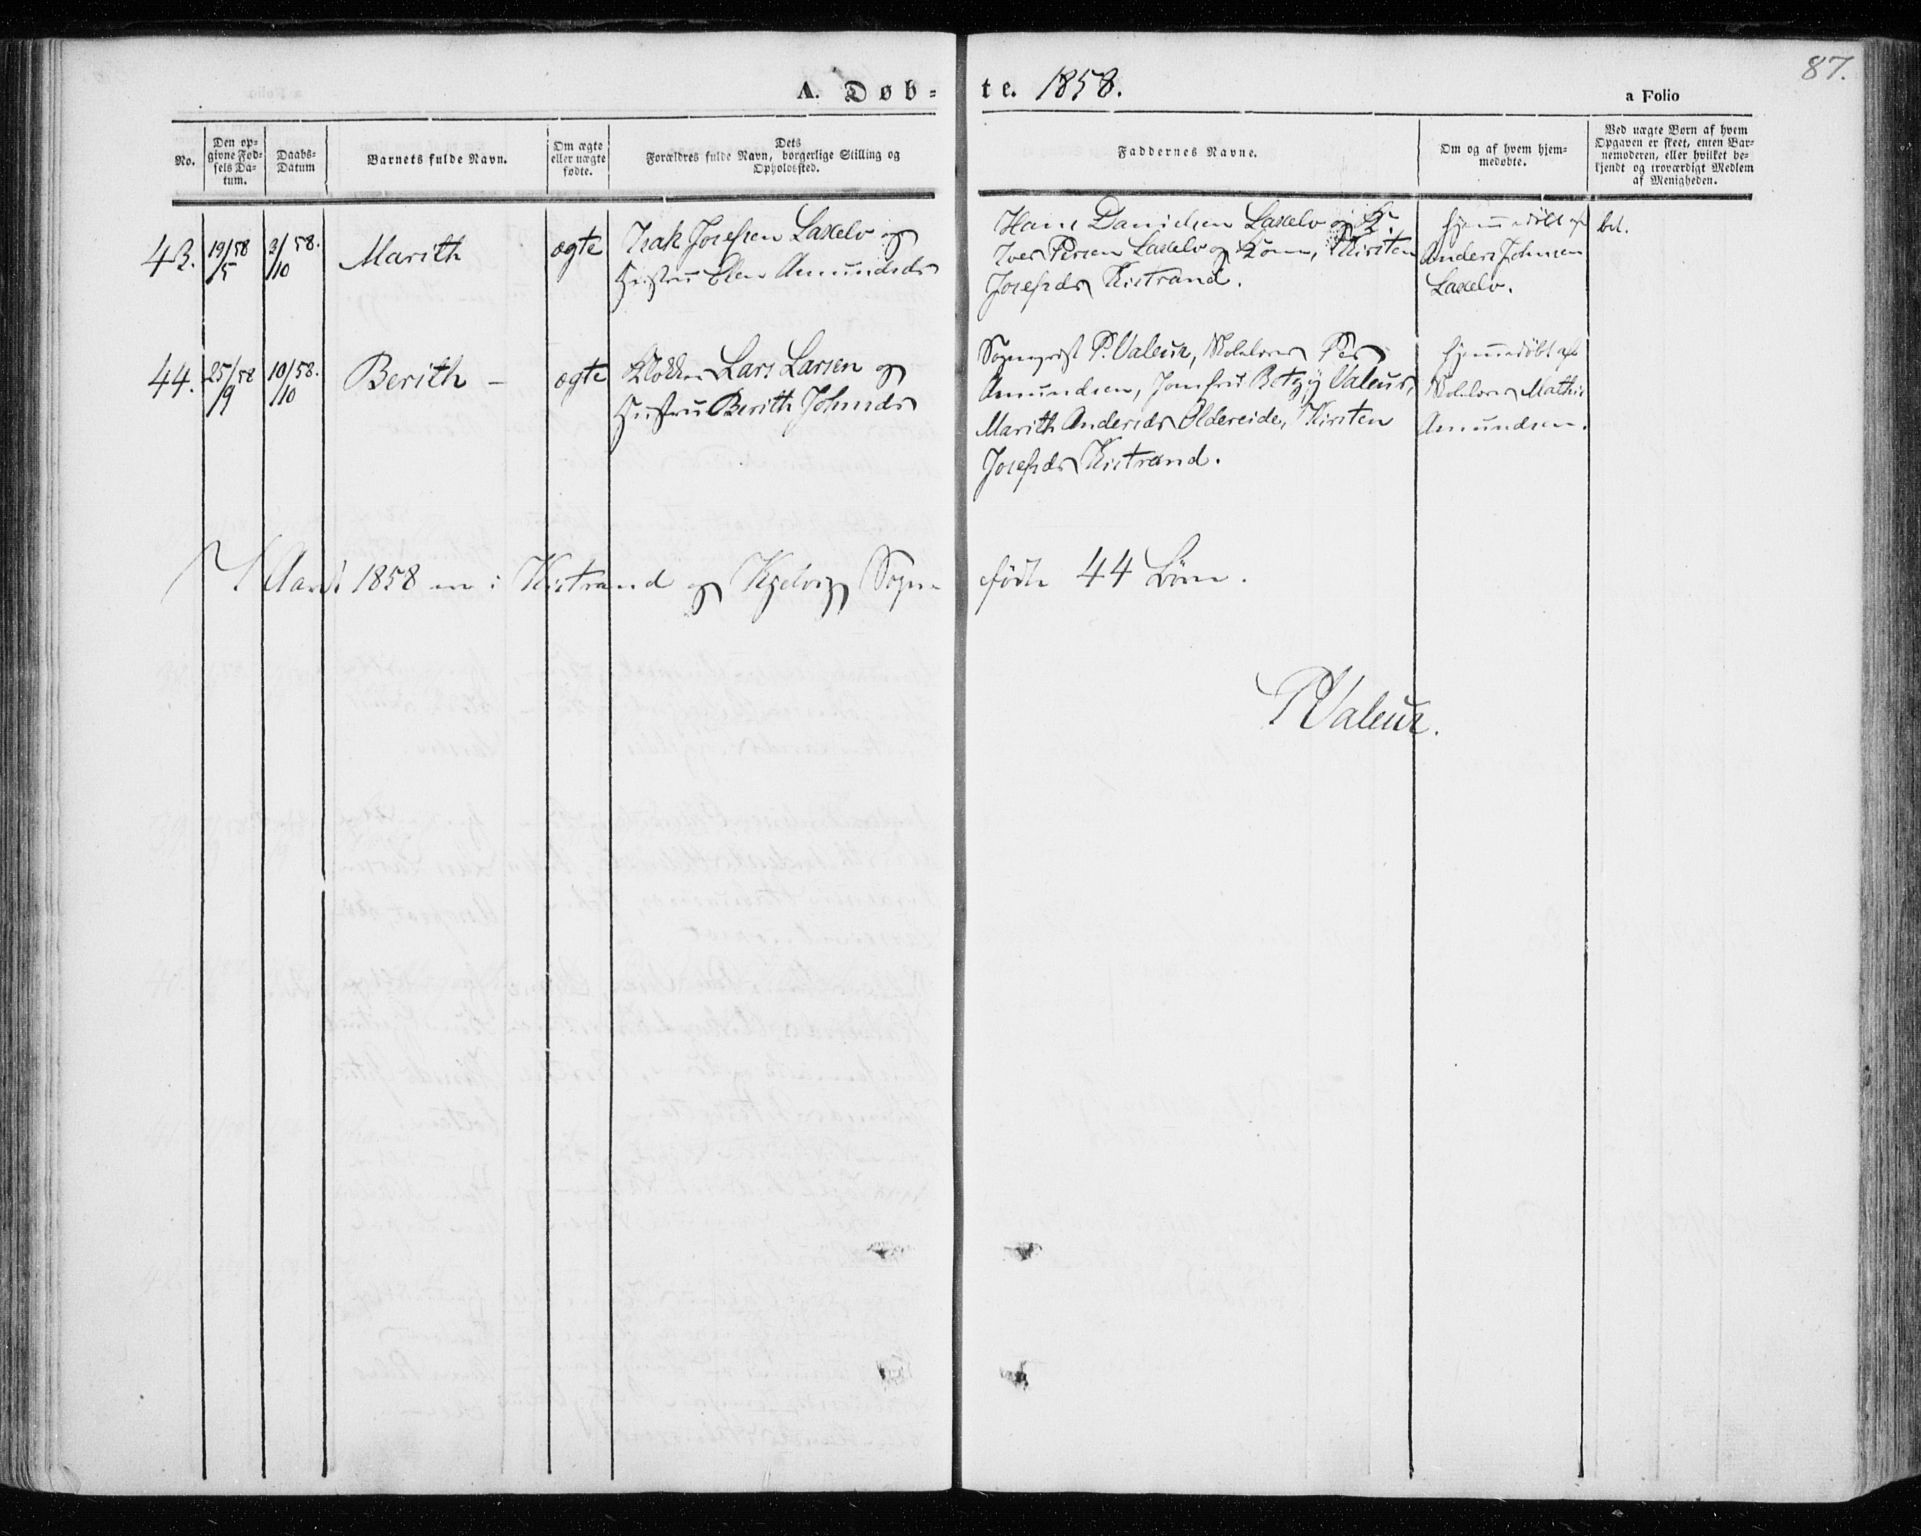 87.
A. Døb-te. 1858.
a Folio
No.
Den op-
givne Fød-
sels Da-
tum.
Daabs-
Datum
Barnets fulde Navn.
Om ægte
eller uægte
fødte.
Dets
Forældres fulde Navn, borgerlige Stilling og
Opholdssted.
Faddernes Navne.
Om og af hvem hjem-
medøbte.
Ved uægte Børn af hvem
Opgaven er skeet, enten Bar-
nemoderen, eller hvilket be-
kjendt og troværdigt Medlem
af Menigheden.
43. 19/5 58 3/10 58. Marith ægte Isak Josefsen Laxelv og
Hustru Elen Amundsdr
Hans Danielsen Laxelv og K.
Iver Persen Laxelv og Kone, Kirsten
Josefsdr Kistrand.
Hjemmedøbt af
Anders Johnsen
Laxelv.
bet.
44. 25/9 58 10/10 58. Berith - ægte Klokker Lars Larsen og
Hustru Berith Johnsdr
Sognepræst P. Valeur, Skolelærer Per
Amundsen, Jomfru Betzy Valeur,
Marith Andersdr Oldereide, Kirsten
Josefsdr Kistrand.
Hjemmedøbt af
Skolelærer Mathis
Amundsen.
I Aaret 1858 ere i Kistrand og Kjelvig Sogne fødte 44 Børn.
P Valeur.